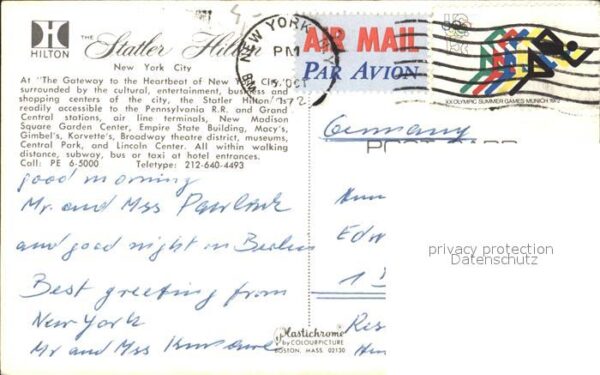 HILTON
THE Statler Hilton
New York City
At "The Gateway to the Heartbeat of New York City,"
surrounded by the cultural, entertainment, business and
shopping centers of the city, the Statler Hilton is
readily accessible to the Pennsylvania R.R. and Grand
Central stations, air line terminals, New Madison
Square Garden Center, Empire State Building, Macy's,
Gimbel's, Korvette's, Broadway theatre district, museums,
Central Park, and Lincoln Center. All within walking
distance, subway, bus or taxi at hotel entrances.
Call: PE 6-5000 Teletype: 212-640-4493
NEW YORK, N.Y.
PM
5 OCT
1972
AIR MAIL
PAR AVION
XX OLYMPIC SUMMER GAMES MUNICH 1972
Germany
POST CARD
good morning
Mr. and Mss
and good night in Berlin
Best greeting from
New York
Mr and Mss
Edw
1
Res
privacy protection
Datenschutz
Plastichrome
by COLOURPICTURE
BOSTON, MASS. 02130